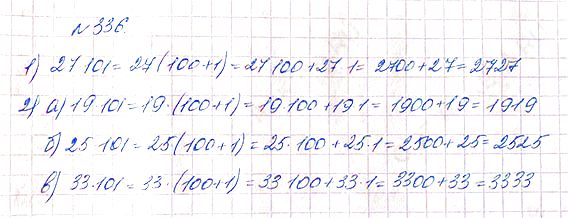 № 336.
1) 27 101 = 27 (100+1) = 27 100 + 27 1 = 2700 + 27 = 2727
2) а) 19 101 = 19 · (100+1) = 19 100 + 19 1 = 1900 + 19 = 1919
б) 25 101 = 25 (100+1) = 25 · 100 + 25 · 1 = 2500 + 25 = 2525
в) 33 · 101 = 33 · (100+1) = 33 100 + 33 · 1 = 3300 + 33 = 3333